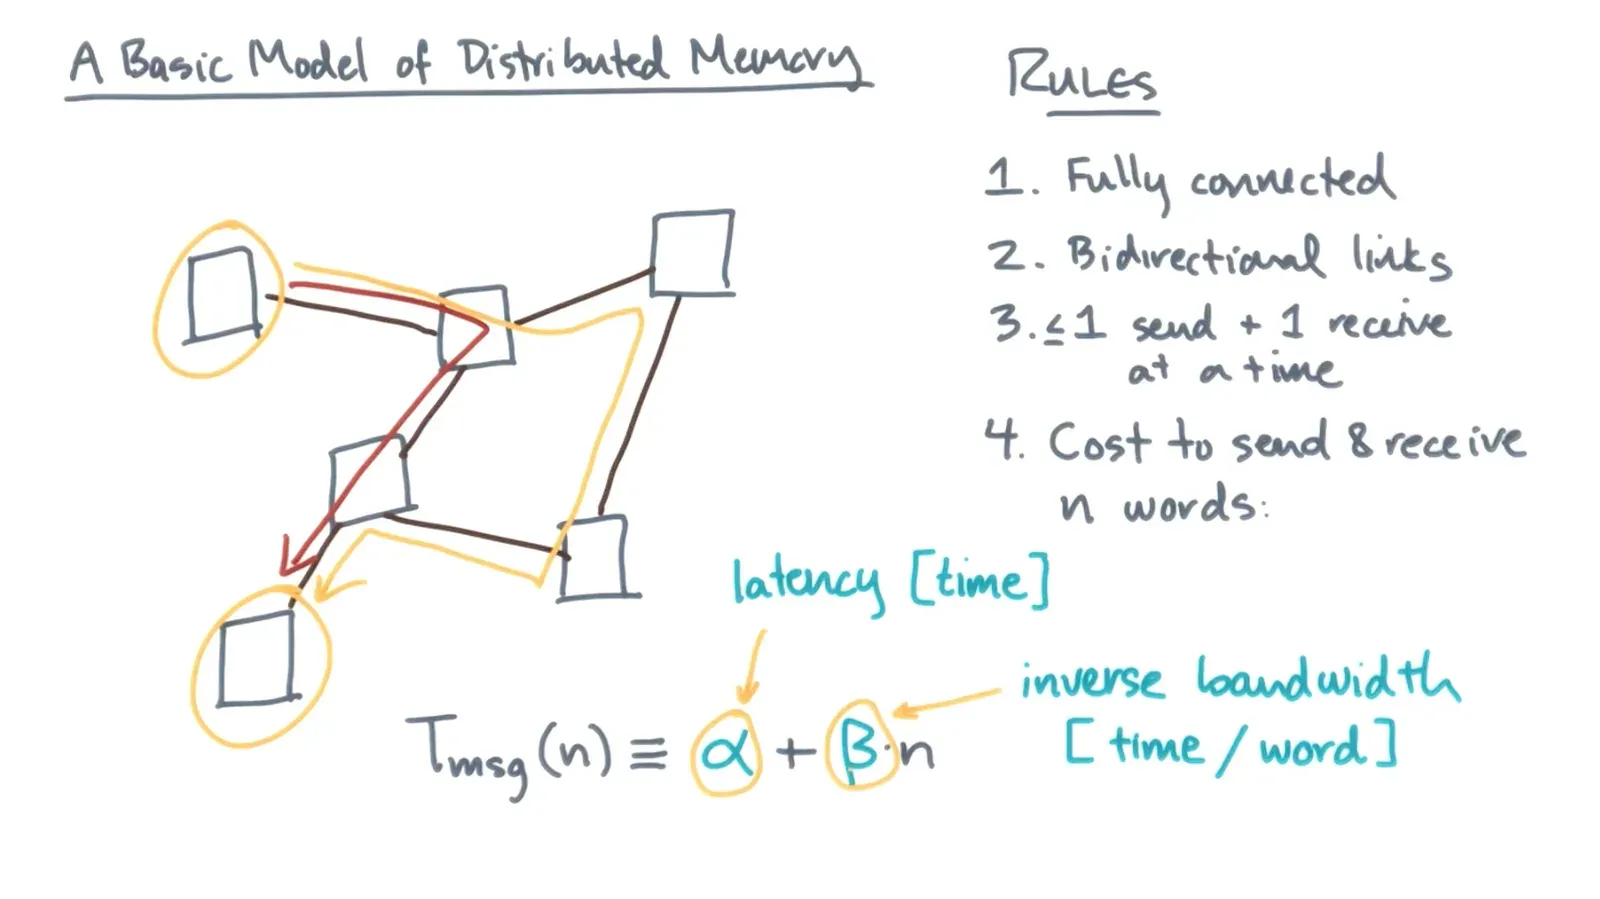 A Basic Model of Distributed Memory
RULES
1. Fully connected
2. Bidirectional links
3. ≤1 send + 1 receive
at a time
4. Cost to send & receive
n words:
latency [time]
inverse bandwidth
[time/word]
Tmsg(n) ≡ α + β·n